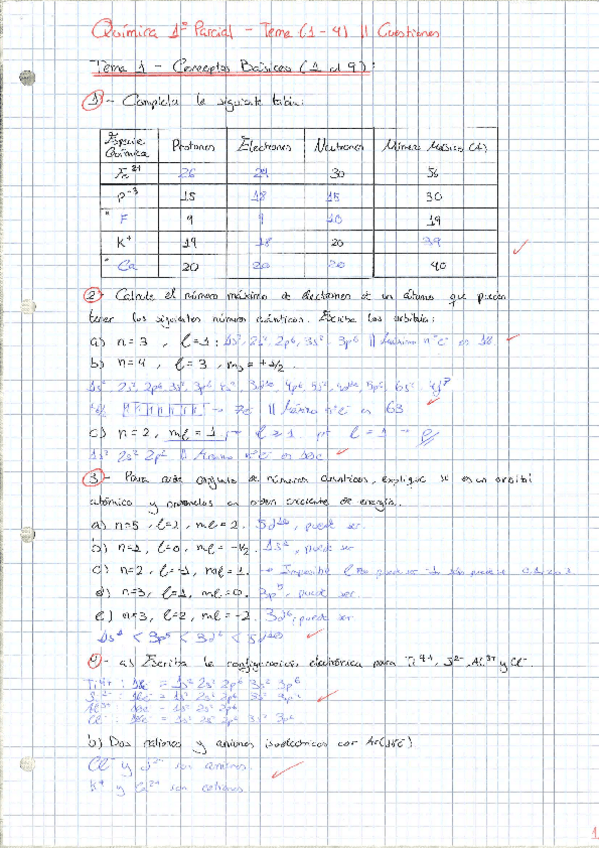 Química 1º Parcial - Tema (1-4) || Cuestiones
Tema 1 - Conceptos Básicos (1 al 9):
1 - Completa la siguiente tabla:
Especie Química Protones Electrones Neutrones Número Másico (A)
26 30 56
P⁻³ 15 18 15 30
F 9 9 10 19
K⁺ 19 18 20 39
Ca 20 20 20 40
2 - Calcule el número máximo de electrones de un átomo que pueden
tener los siguientes números cuánticos. Escriba los orbitales:
a) n=3, l=1: 1s² 2s² 2p⁶ 3s² 3p⁶ || Máximo nº e⁻ es 18
b) n=4, l=3, ms=+1/2
→ 7e⁻ || Máximo nº e⁻ es 63
c) n=2, ml=1, → l=1
1s² 2s² 2p⁶ || Máximo nº e⁻ es 10e⁻
3 - Para cada conjunto de números cuánticos, explique si es un orbital
atómico y ordenelos en orden creciente de energía.
a) n=5, l=2, ml=2. 5d¹⁰, puede ser.
b) n=1, l=0, ml=-1/2. 1s², puede ser
c) n=2, l=-1, ml=1. → Imposible
d) n=3, l=1, ml=0. 3p⁵, puede ser.
e) n=3, l=2, ml=-2. 3d⁶, puede ser.
4 - a) Escriba la configuración electrónica para Ti⁴⁺, S²⁻, Al³⁺ y Cl⁻.
Ti⁴⁺: 18e⁻ = 1s² 2s² 2p⁶ 3s² 3p⁶
S²⁻: 18e⁻ = 1s² 2s² 2p⁶ 3s² 3p⁶
Al³⁺: 10e⁻ = 1s² 2s² 2p⁶
Cl⁻: 18e⁻ = 1s² 2s² 2p⁶ 3s² 3p⁶
b) Dos cationes y aniones isoelectrónicos con Ar(18e⁻)
Cl⁻ y S²⁻ son aniones.
K⁺ y Ca²⁺ son cationes.
1